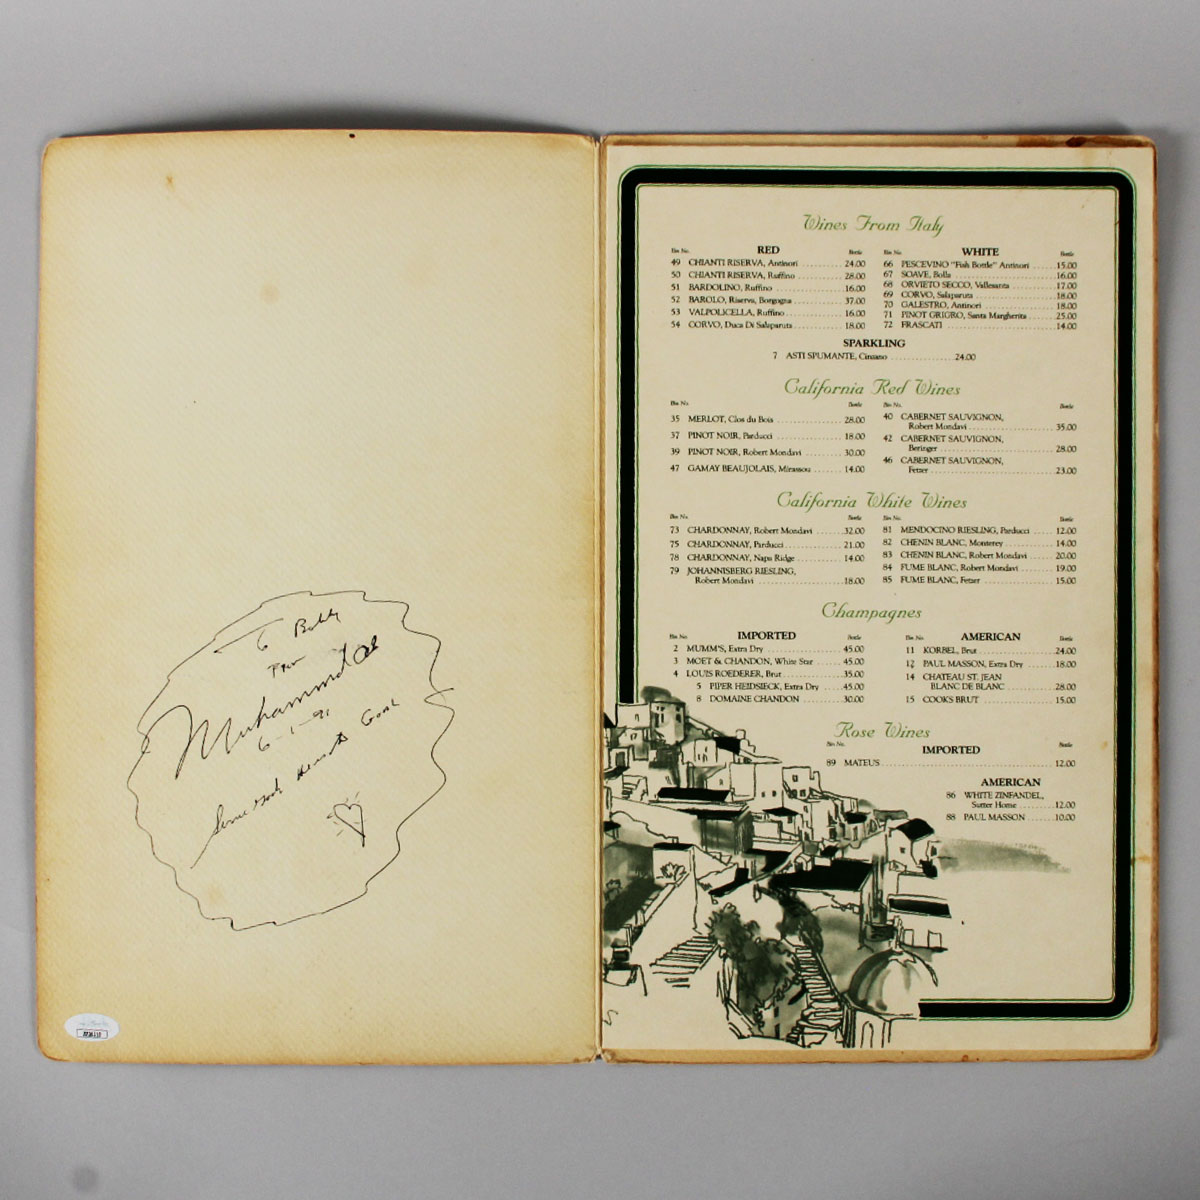 To Bobby
From
Muhammad Ali
6-1-91
Service Book Heaven's Goal
Wines From Italy
RED
Bin No. Bottle
49 CHIANTI RISERVA, Antinori 24.00
50 CHIANTI RISERVA, Ruffino 28.00
51 BARDOLINO, Ruffino 16.00
52 BAROLO, Riserva, Borgogna 37.00
53 VALPOLICELLA, Ruffino 16.00
54 CORVO, Duca Di Salaparuta 18.00
WHITE
Bin No. Bottle
66 PESCEVINO "Fish Bottle" Antinori 15.00
67 SOAVE, Bolla 16.00
68 ORVIETO SECCO, Vallesanta 17.00
69 CORVO, Salaparuta 18.00
70 GALESTRO, Antinori 18.00
71 PINOT GRIGRO, Santa Margherita 25.00
72 FRASCATI 14.00
SPARKLING
7 ASTI SPUMANTE, Cinzano 24.00
California Red Wines
Bin No. Bottle
35 MERLOT, Clos du Bois 28.00
37 PINOT NOIR, Parducci 18.00
39 PINOT NOIR, Robert Mondavi 30.00
47 GAMAY BEAUJOLAIS, Mirassou 14.00
Bin No. Bottle
40 CABERNET SAUVIGNON,
Robert Mondavi 35.00
42 CABERNET SAUVIGNON,
Beringer 28.00
46 CABERNET SAUVIGNON,
Fetzer 23.00
California White Wines
Bin No. Bottle
73 CHARDONNAY, Robert Mondavi 32.00
75 CHARDONNAY, Parducci 21.00
78 CHARDONNAY, Napa Ridge 14.00
79 JOHANNISBERG RIESLING,
Robert Mondavi 18.00
Bin No. Bottle
81 MENDOCINO RIESLING, Parducci 12.00
82 CHENIN BLANC, Monterey 14.00
83 CHENIN BLANC, Robert Mondavi 20.00
84 FUME BLANC, Robert Mondavi 19.00
85 FUME BLANC, Fetzer 15.00
Champagnes
IMPORTED
Bin No. Bottle
2 MUMM'S, Extra Dry 45.00
3 MOET & CHANDON, White Star 45.00
4 LOUIS ROEDERER, Brut 35.00
5 PIPER HEIDSIECK, Extra Dry 45.00
8 DOMAINE CHANDON 30.00
AMERICAN
Bin No. Bottle
11 KORBEL, Brut 24.00
12 PAUL MASSON, Extra Dry 18.00
14 CHATEAU ST. JEAN
BLANC DE BLANC 28.00
15 COOKS BRUT 15.00
Rose Wines
IMPORTED
Bin No. Bottle
89 MATEUS 12.00
AMERICAN
86 WHITE ZINFANDEL,
Sutter Home 12.00
88 PAUL MASSON 10.00